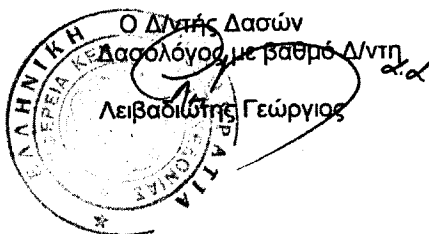 Ο Δ/ντής Δασών
Δασολόγος με βαθμό Δ/ντη
α.α
Λειβαδιώτης Γεώργιος
ΕΛΛΗΝΙΚΗ